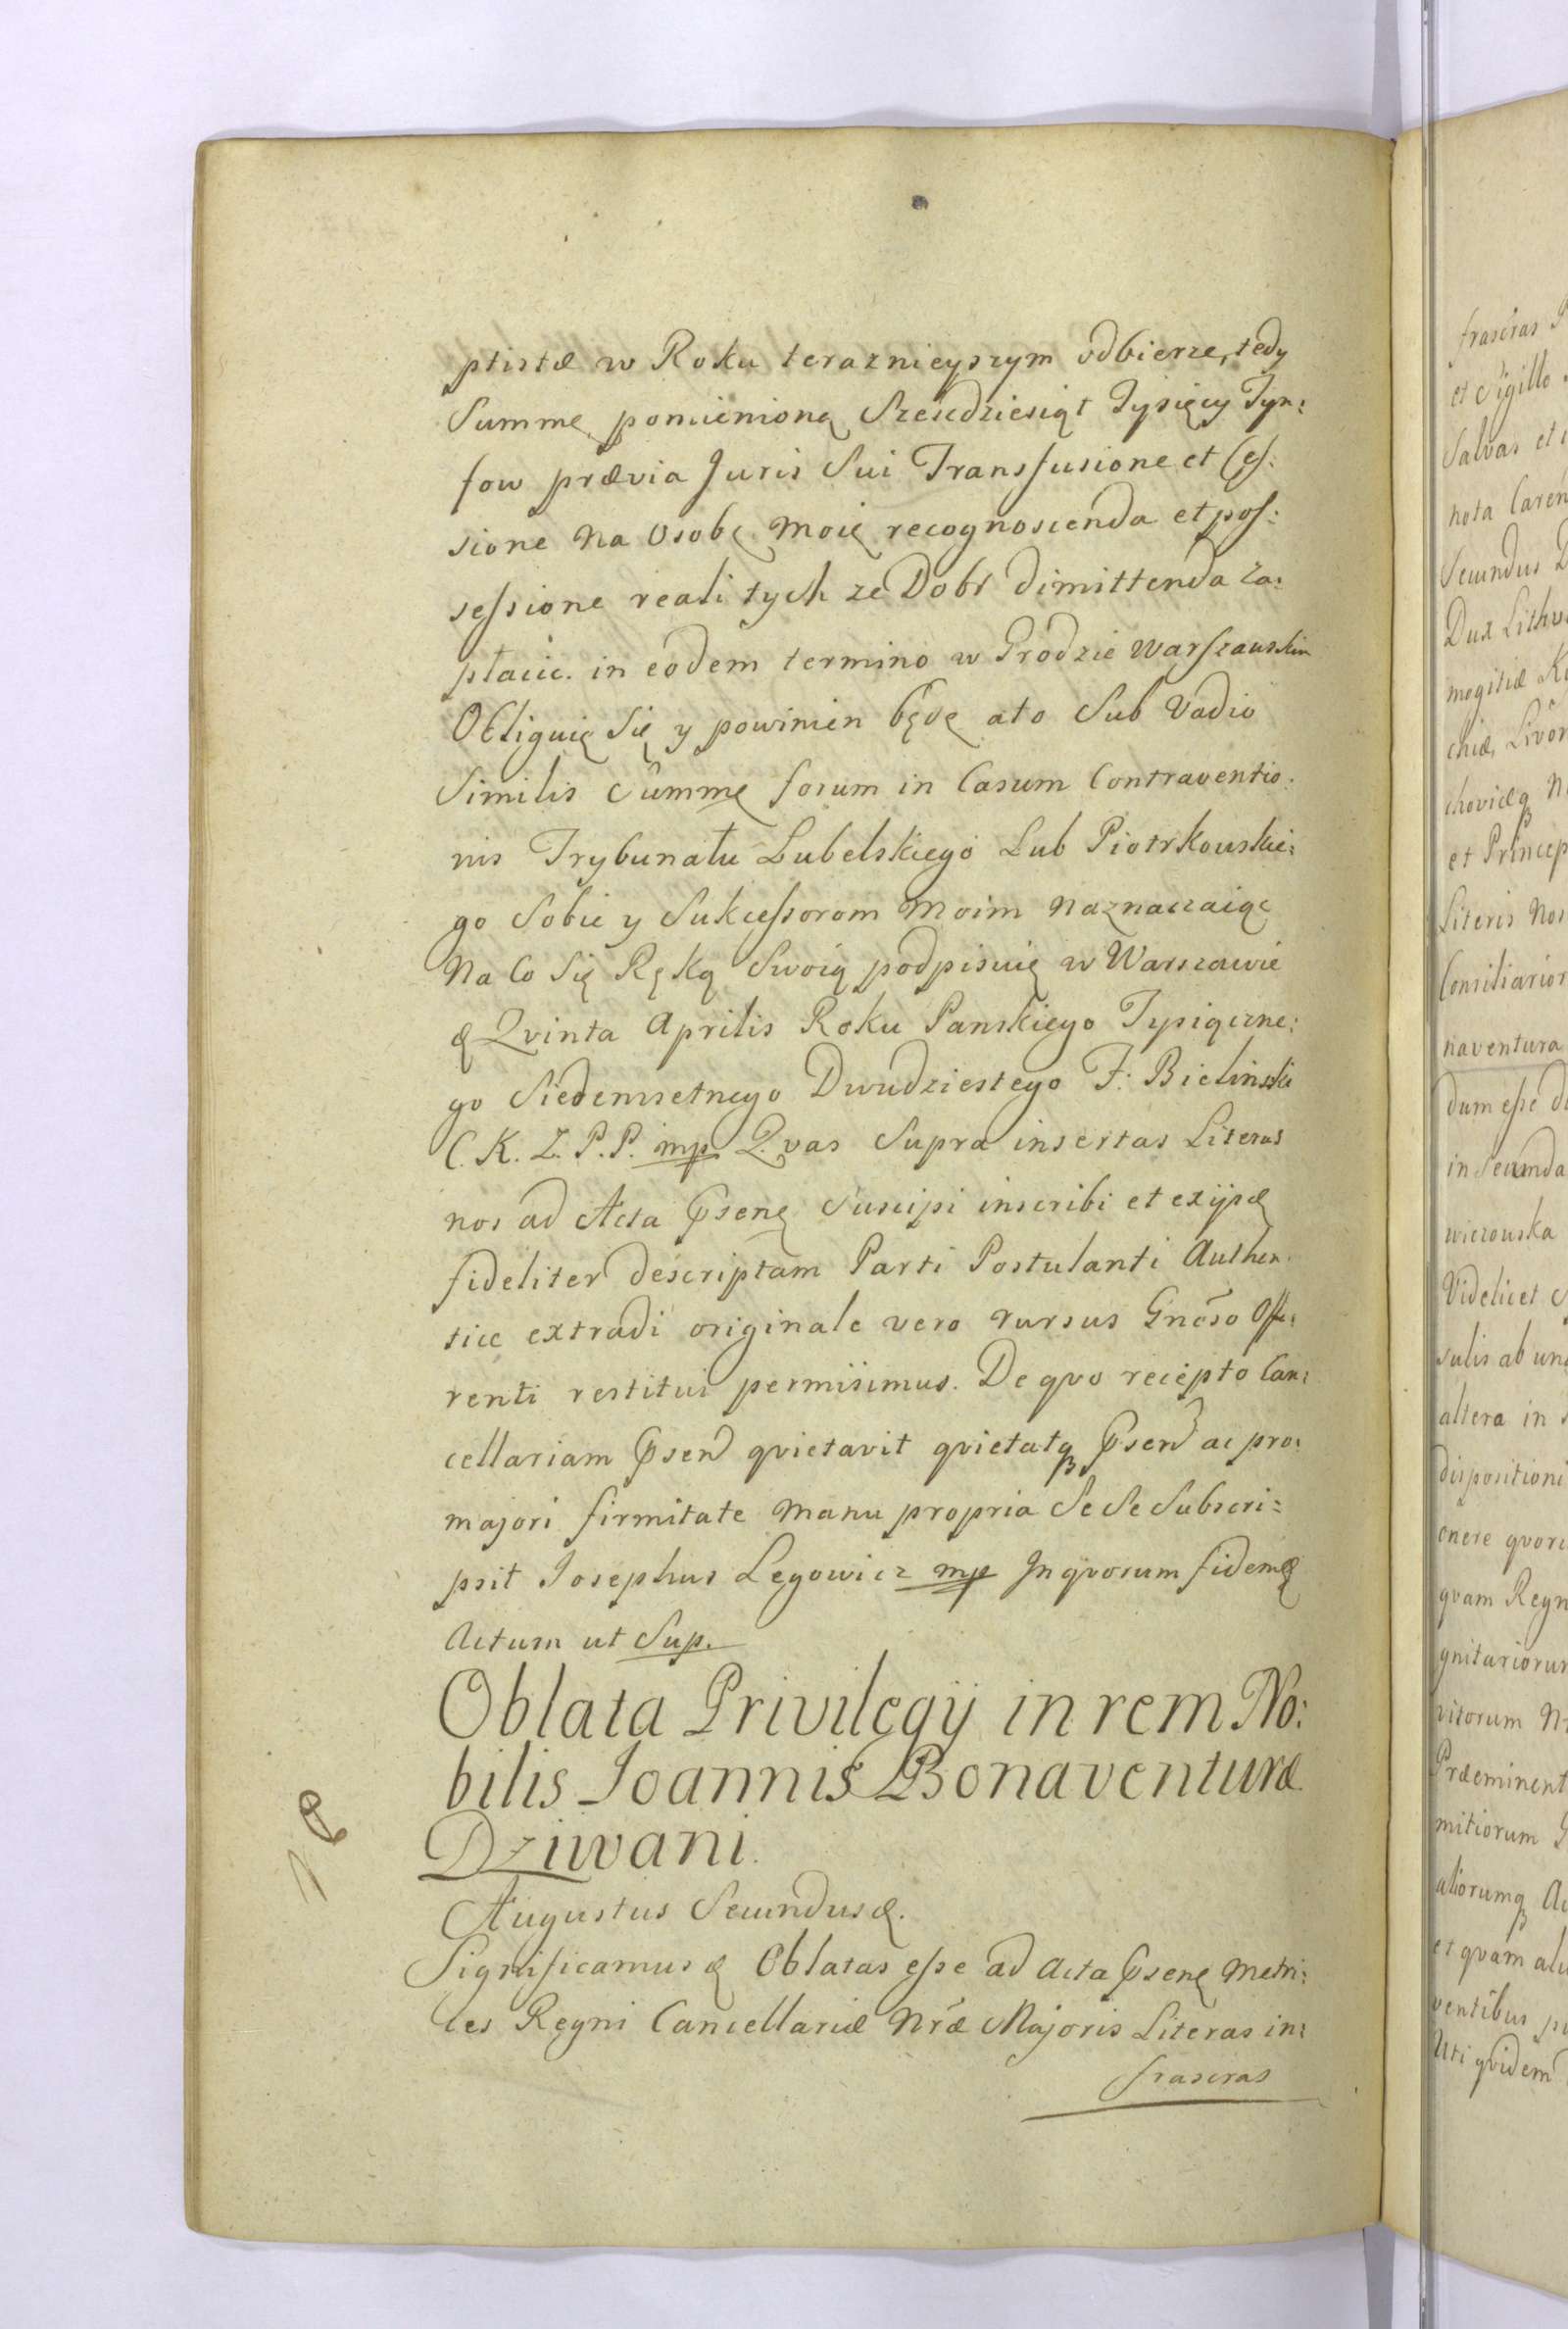 ptistæ w Roku teraznieyszym odbierze, tedy
Summę pomienioną Szescdziesiąt Tysięcy Tyn:
fow prævia Juris Sui Transfusione et Ces:
sione na Osobę moię recognoscenda et pos:
sessione reali tych ze Dobr dimittenda za:
płacic. in eodem termino w Grodzie Warszawskim
Obliguię Się y powinien będę ato Sub Vadio
Similis Summę forum in Casum Contraventio:
nis Trybunału Lubelskiego Lub Piotrkowskie:
go Sobie y Sukcessorom moim naznaczaiąc
na Co Się Ręką Swoią podpisuię w Warszawie
d Qvinta Aprilis Roku Panskiego Tysiączne:
go Siedemsetnego Dwudziestego F: Bielinski
C. K. Z. P. P. mp. Qvas Supra insertas Literas
nos ad Acta Psenę Suscipi inscribi et exijsdę
fideliter descriptam Parti Postulanti Authen:
tice extradi originale vero rursus Gnoso Offe:
renti restitui permisimus. De qvo recepto Can:
cellariam Psen qvietavit qvietatq Psen ac pro:
majori firmitate manu propria Se Se Subscri:
psit Josephus Legowicz mp In qvorum fidem &
Actum ut Sup.
Oblata Privilegij in rem No:
bilis Joannis Bonaventuræ
Dziwani.
Augustus Secundus &.
Significamus & Oblatas esse ad Acta Psenę Metri:
ces Regni Cancellariæ Nræ Majoris Literas in:
frascras
frascras
et Sigillo
Salvas et
nota Caren
Secundus D
Dux Lithv
mogitiæ
chiæ, Livon
choviæq
et Princep
Literis Nos
Consiliarior
naventura
dum esse
in Secunda
wiczowska
Videlicet
sulis ab una
altera in
dispositioni
onere qvor
qvam Regn
gnitariorum
visorum
Præeminent
mitiorum
aliorumq
et qvam ali
ventibus
Uti qvidem